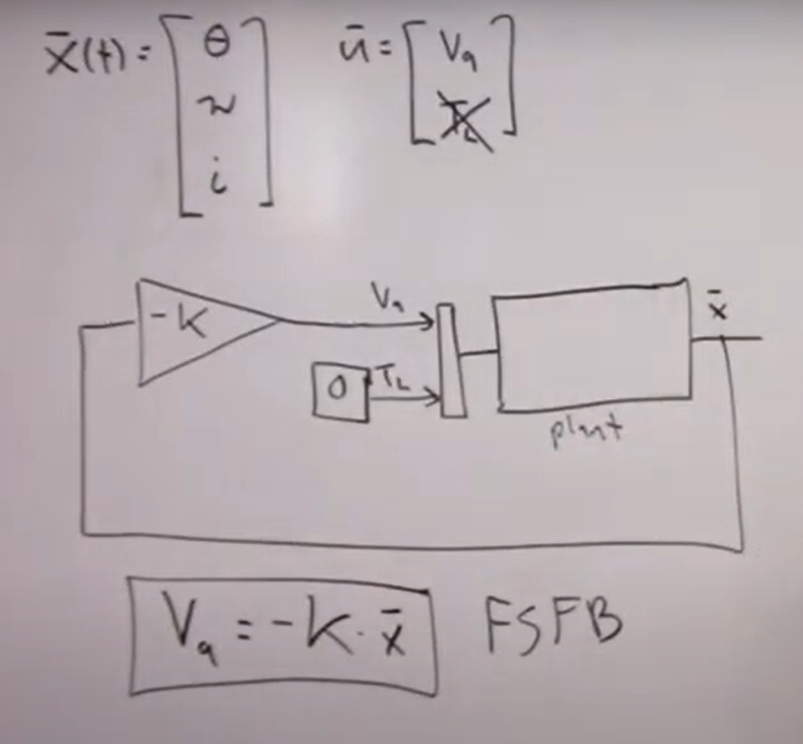 x̄(t) = [θ ω i] ū = [Va T̶L̶]
-K
Va
0 TL
x̄
plant
Va = -K · x̄ FSFB